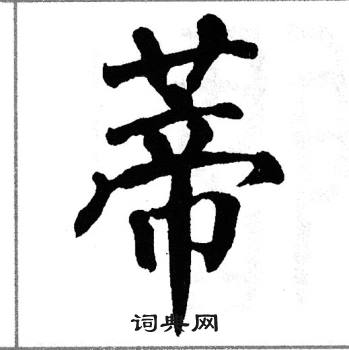 蒂
词典网